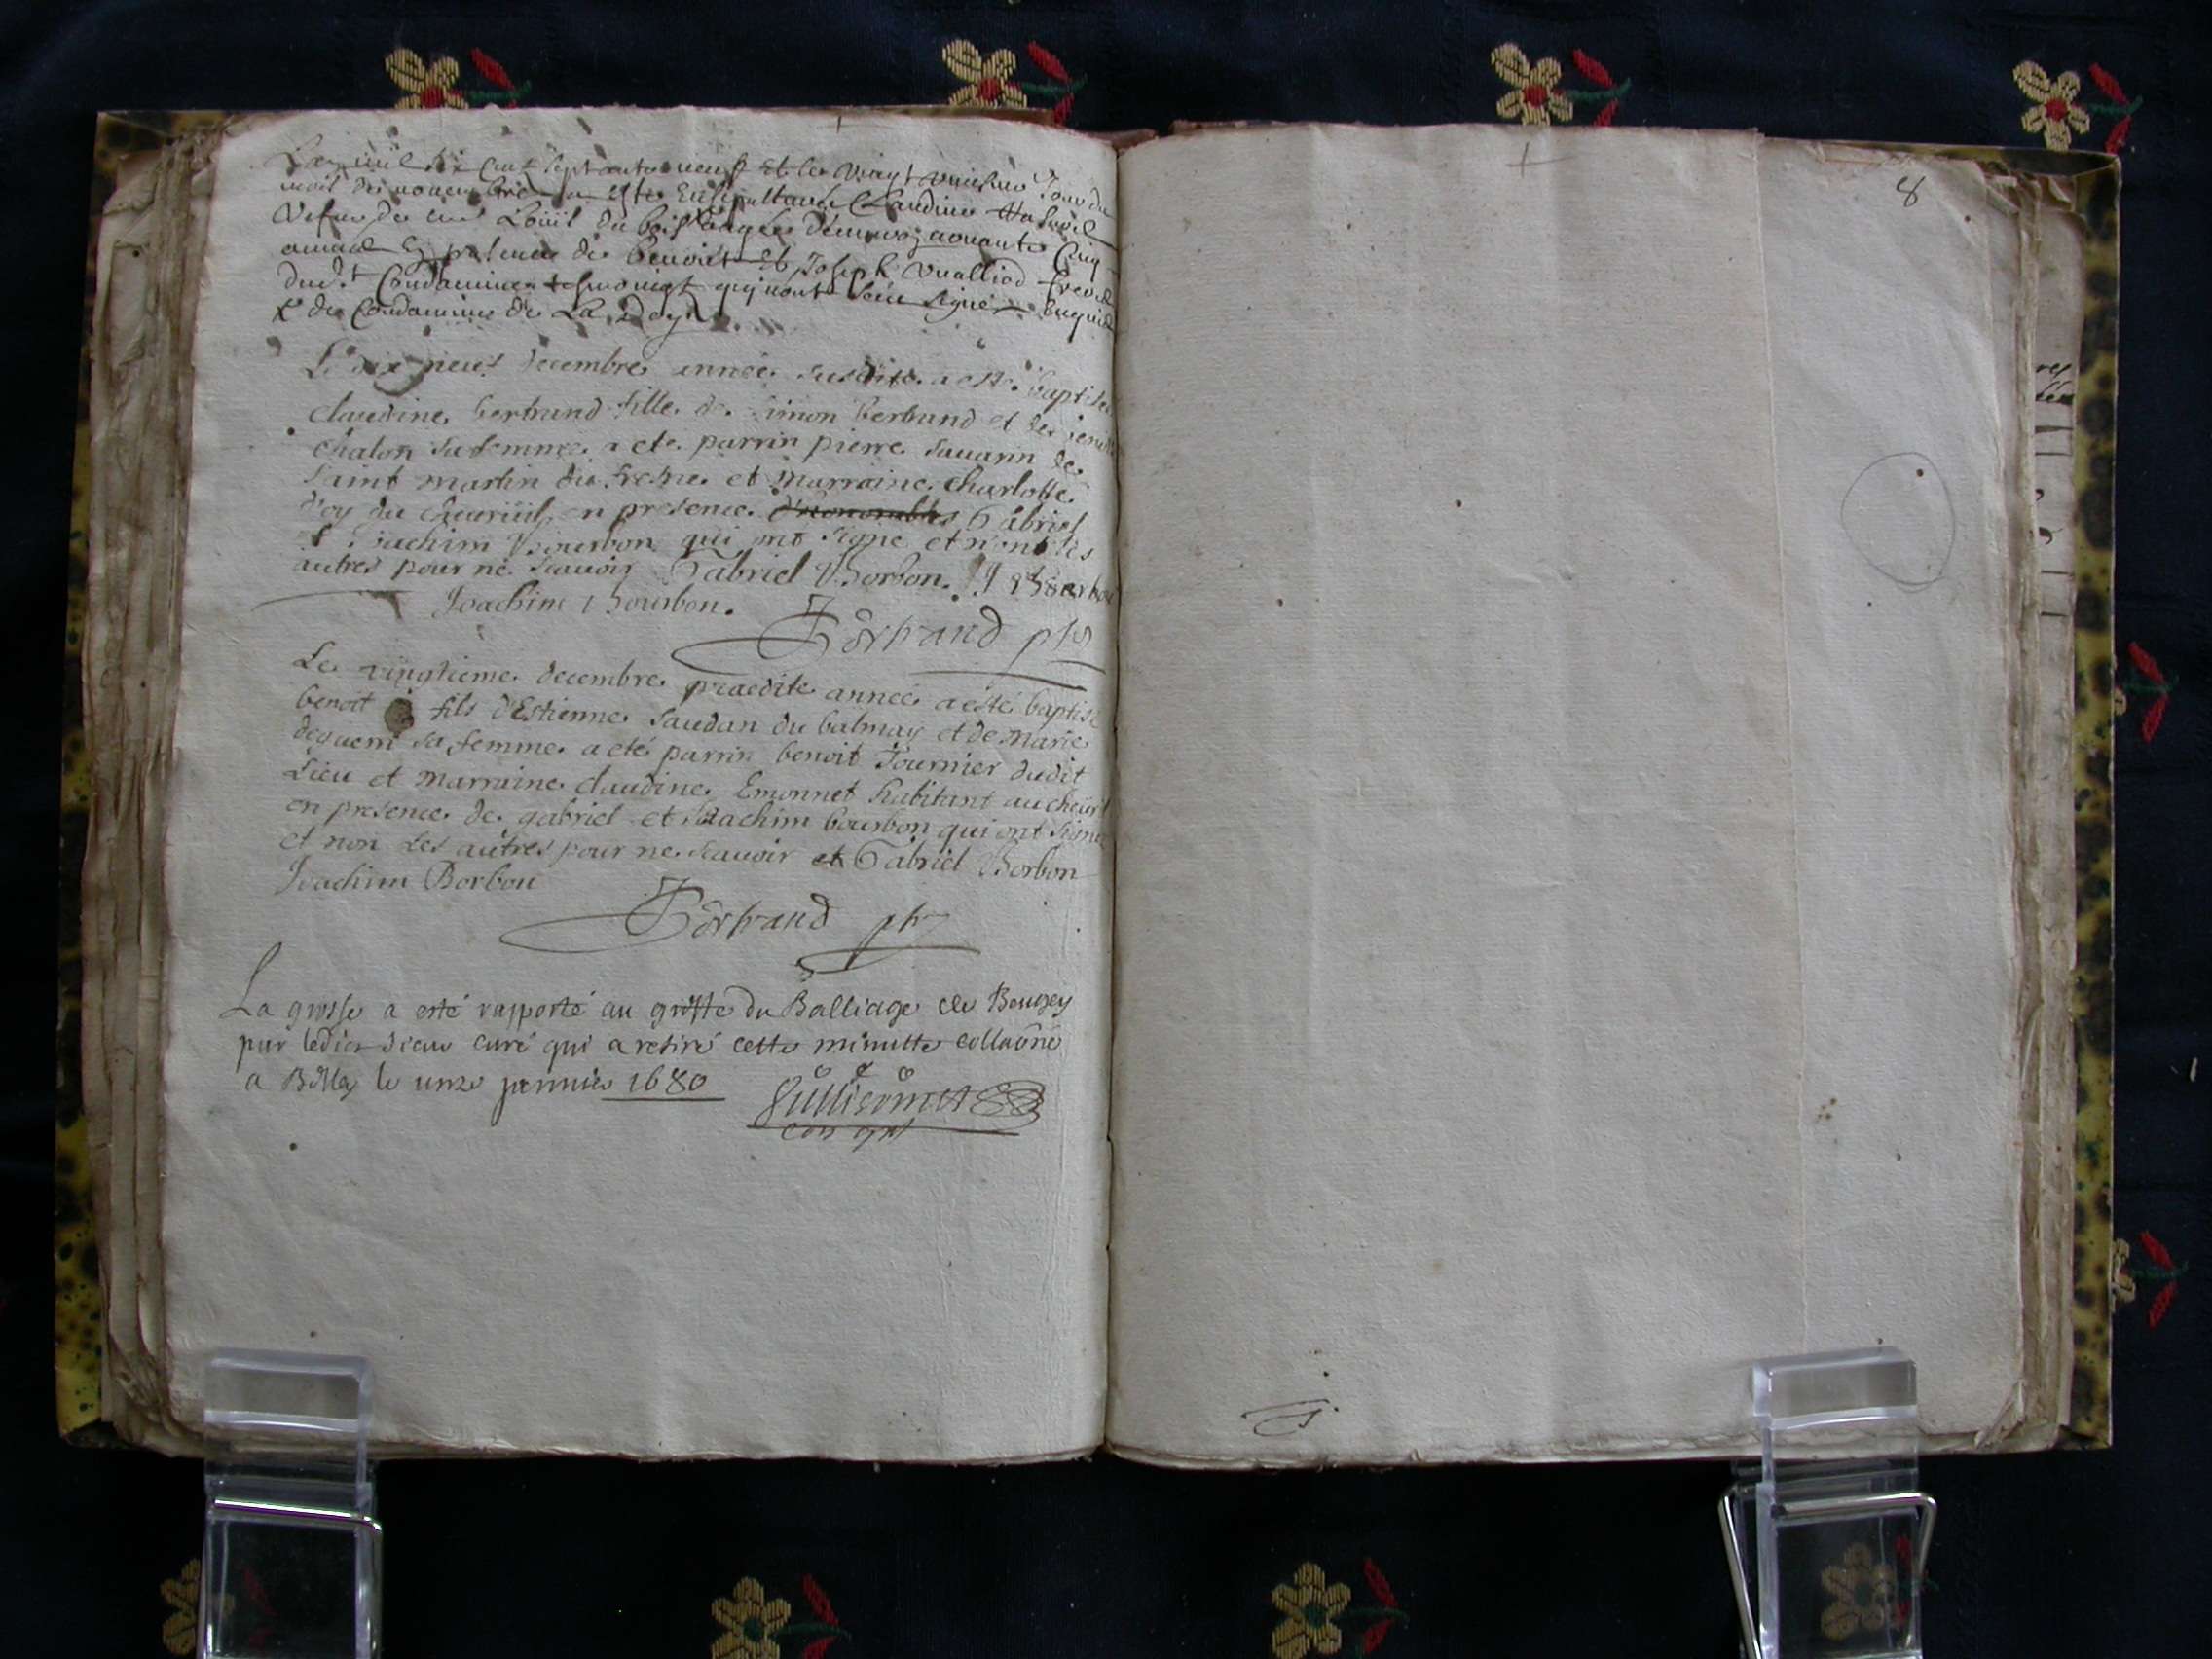 Lan mil six cent septante neuf et le vingt uniesme Jour du
mois de novembre a este Ensepulturée Claudine
Vefve de Louis du bois eagée denviron nonante Cinq
année En presence de benoist et Joseph vualliod freres
dud.t Condamine tesmoingt quj nont sceu signé Enquis
de Condamine de La Doye
Le dix neuf decembre année susdite a esté baptisée
claudine bertrand fille de simon bertrand et de
chalon sa femme a eté parrin pierre sauarin de
saint martin du fresne et marraine charlotte
d'oy du cheuriil en presence d'honorables Gabriel
et Joachim Bourbon qui ont signe et non les
autres pour ne scauoir Gabriel Borbon.
Joachim Bourbon.
Bertrand ptre
Le vingtieme decembre praedite année a esté baptisé
benoit fils d'Estienne saudan du balmay et de marie
deguerri sa femme a eté parrin benoit Tournier dudit
Lieu et marraine claudine Emonnet habitant au cheüril
en presence de gabriel et Joachim bourbon qui ont signe
et non les autres pour ne scauoir et Gabriel Borbon
Joachim Borbon
Bertrand ptre
La grosse a esté rapporté au greffe du Balliage de Beugey
par ledict sieur curé qui a retiré cette minutte collaõné
a Belley le unze januier 1680
8